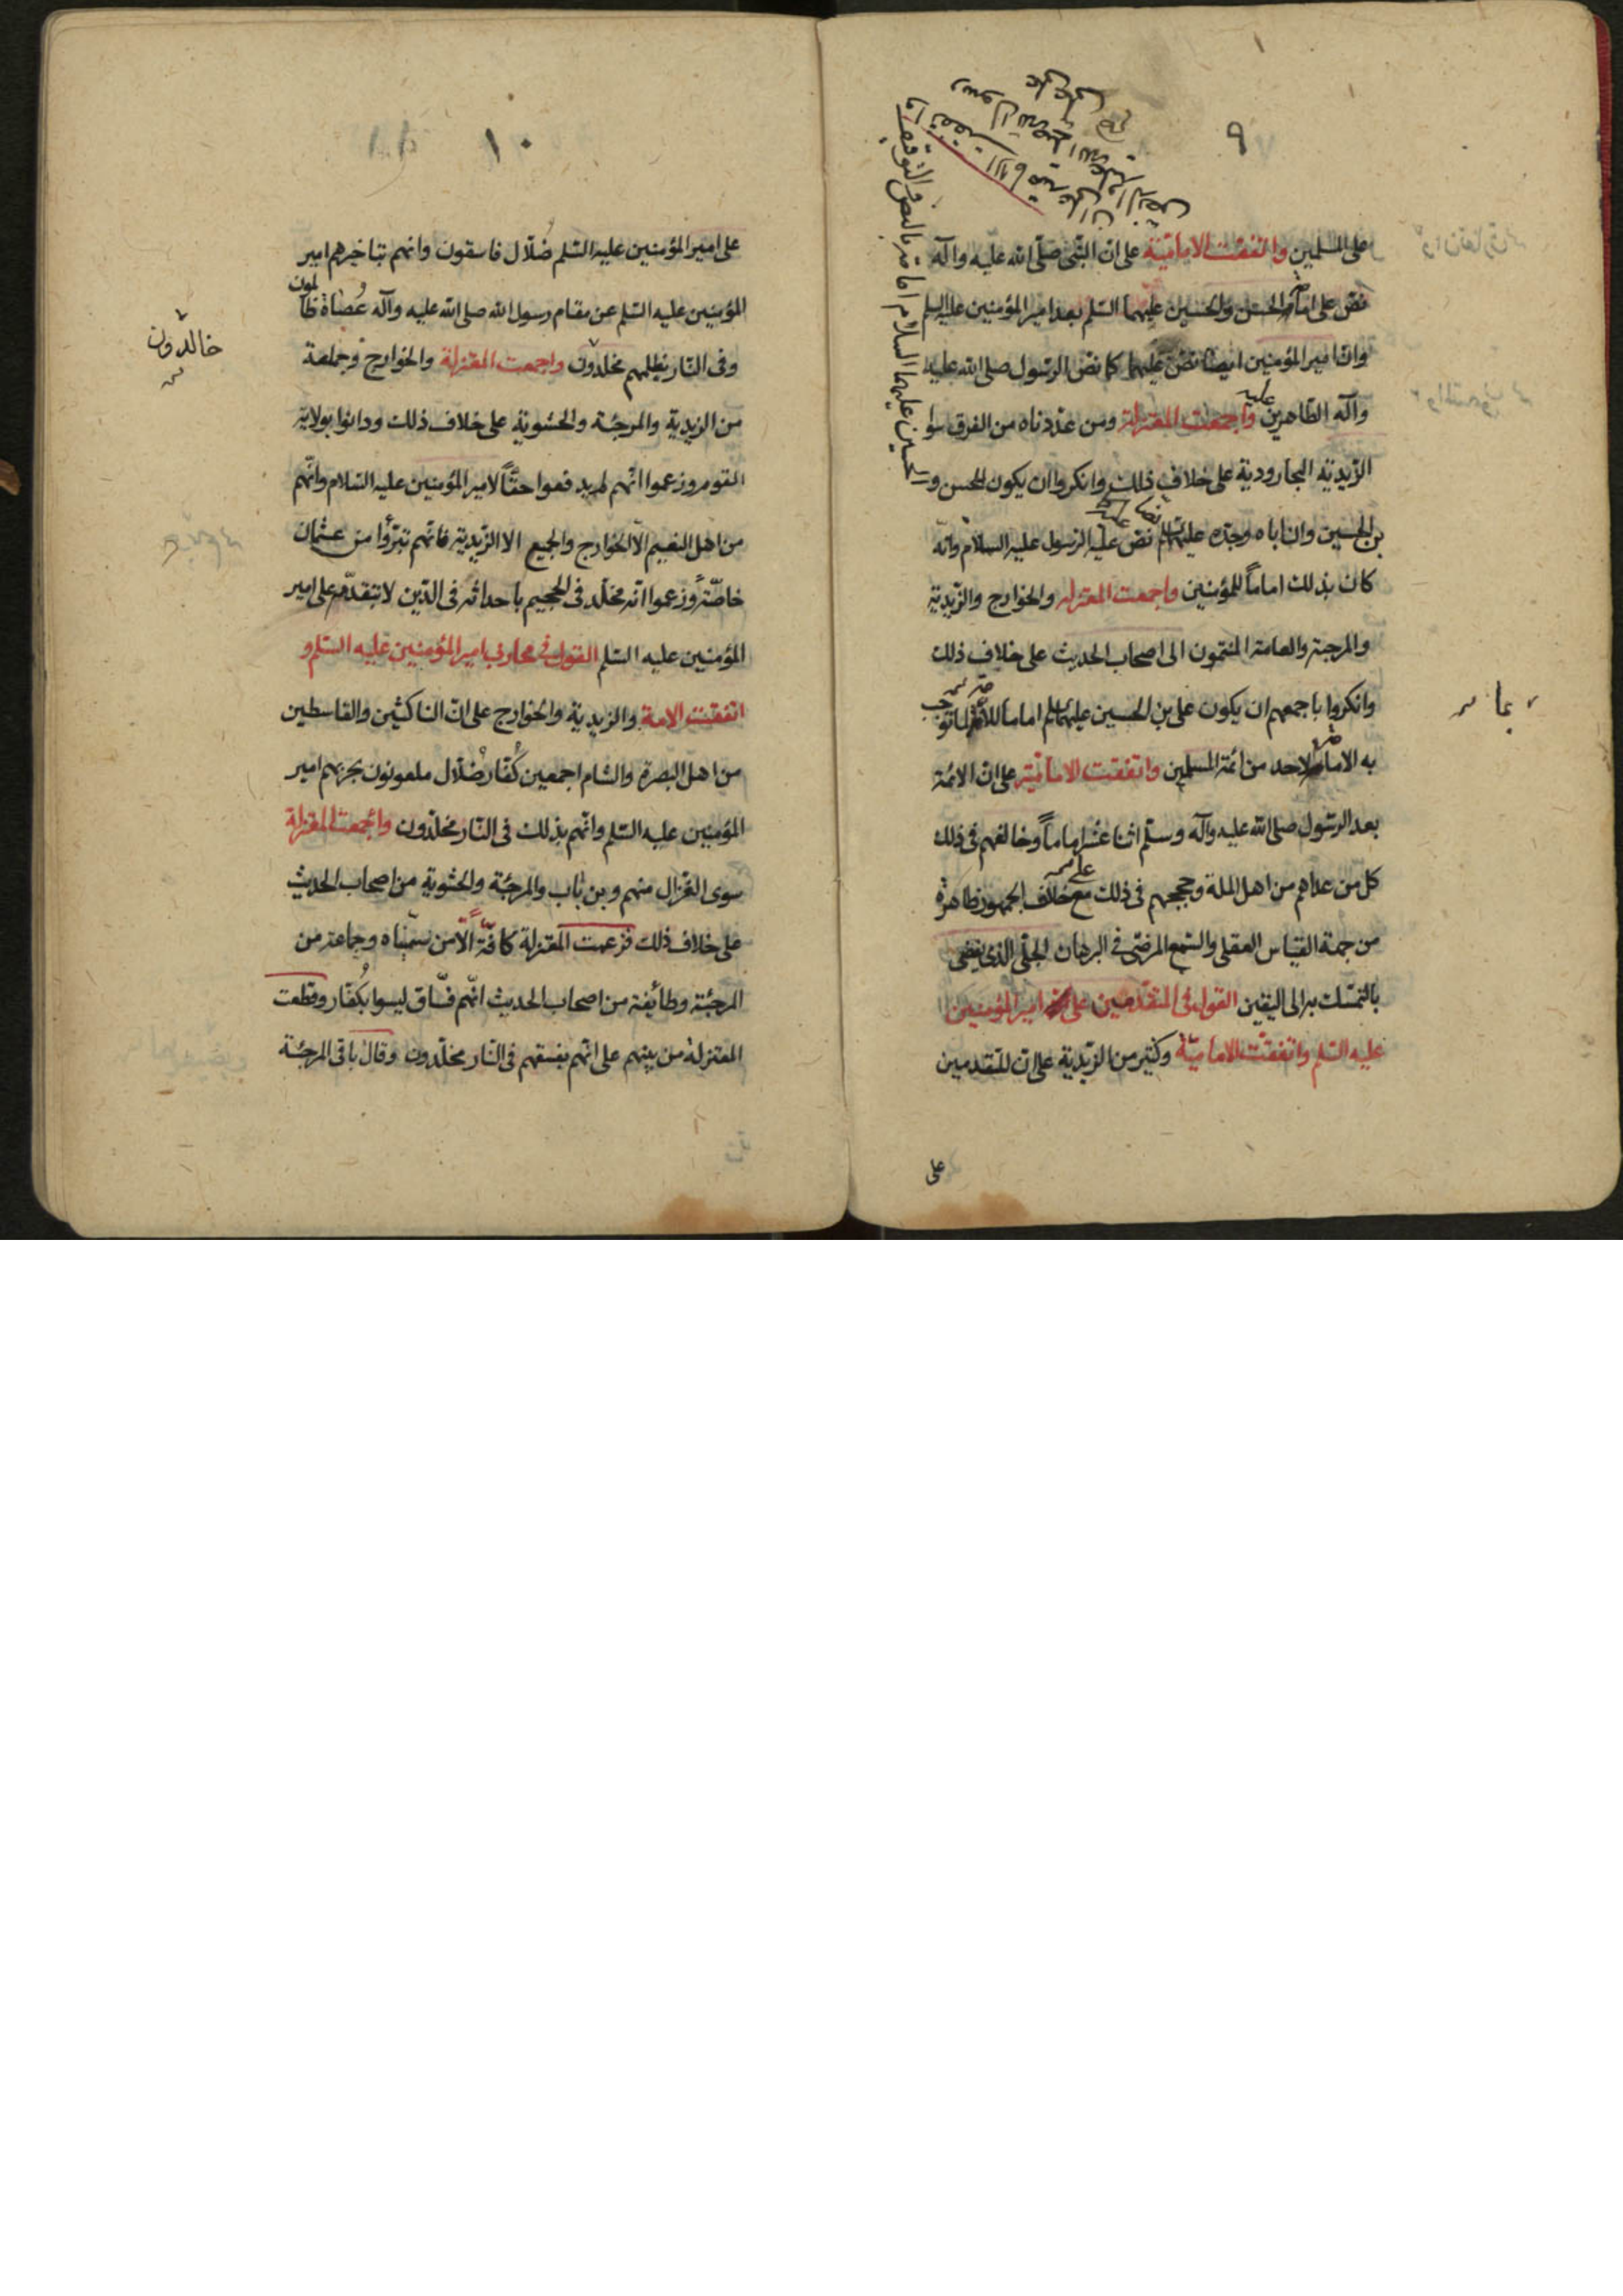 ٩
على المسلمين واتفقت الامامية على ان النبى صلى الله عليه وآله
نص على امامة الحسن والحسين عليهما السلم بعد امير المؤمنين عليه السلم
وان امير المؤمنين ايضا نص عليهما كما نص الرسول صلى الله عليه
وآله الطاهرين واجمعت المعتزلة ومن عددناه من الفرق سوا
الزيدية الجارودية على خلاف ذلك وانكروا ان يكون للحسن و
الحسين عليهما السلام امامة بالنص والتوقيف
بن الحسين وان اباه وجده عليهم نص عليه الرسول عليه السلام وانه
كان بذلك اماماً للمؤمنين واجمعت المعتزله والخوارج والزيدية
والمرجئة والعامة المنتمون الى اصحاب الحديث على خلاف ذلك
وانكروا باجمعهم ان يكون على بن الحسين عليهما السلم اماما للامة بما توجب
به الامامة لاحد من ائمة المسلمين واتفقت الامامية على ان الائمة
بعد الرسول صلى الله عليه وآله وسلم اثنا عشر اماماً وخالفهم فى ذلك
كل من عداهم من اهل الملة وحججهم فى ذلك على خلاف الجمهور ظاهرة
من جهة القياس العقلى والسمع المرضى فى البرهان الجلى الذى يفضى
بالتمسك به الى اليقين القول فى المتقدمين على امير المؤمنين
عليه السلم واتفقت الامامية وكثير من الزيدية على ان المتقدمين
على
بما
١٠
على امير المؤمنين عليه السلم ضُلّال فاسقون وانهم بتاخيرهم امير
المؤمنين عليه السلم عن مقام رسول الله صلى الله عليه وآله عُصاة ظالمون
وفى النار بظلمهم مخلدون واجمعت المعتزلة والخوارج وجماعة
خالدون
من الزيدية والمرجئة والحشوية على خلاف ذلك ودانوا بولاية
القوم وزعموا انهم لم يدفعوا حقّاً لامير المؤمنين عليه السلام وانّهم
من اهل النعيم الا الخوارج والجميع الا الزيدية فانّهم تبرّؤا من عثمان
خاصّة وزعموا انه مخلّد فى الجحيم باحداثه فى الدّين لا بتقدّمه على امير
المؤمنين عليه السلم القول فى محاربى امير المؤمنين عليه السلم و
اتفقت الامة والزيدية والخوارج على ان الناكثين والقاسطين
من اهل البصرة والشام اجمعين كُفّار ضُلّال ملعونون بحربهم امير
المؤمنين عليه السلم وانّهم بذلك فى النّار مخلّدون واجمعت المعتزلة
سوى الغزال منهم وبن باب والمرجئة والحشوية من اصحاب الحديث
على خلاف ذلك فزعمت المعتزلة كافّةً الّا من سمّيناه وجماعة من
المرجئة وطائفة من اصحاب الحديث انّهم فسّاق ليسوا بكُفّار وقطعت
المعتزلة من بينهم على انّهم بفسقهم فى النّار مخلّدون وقال باقى المرجئة